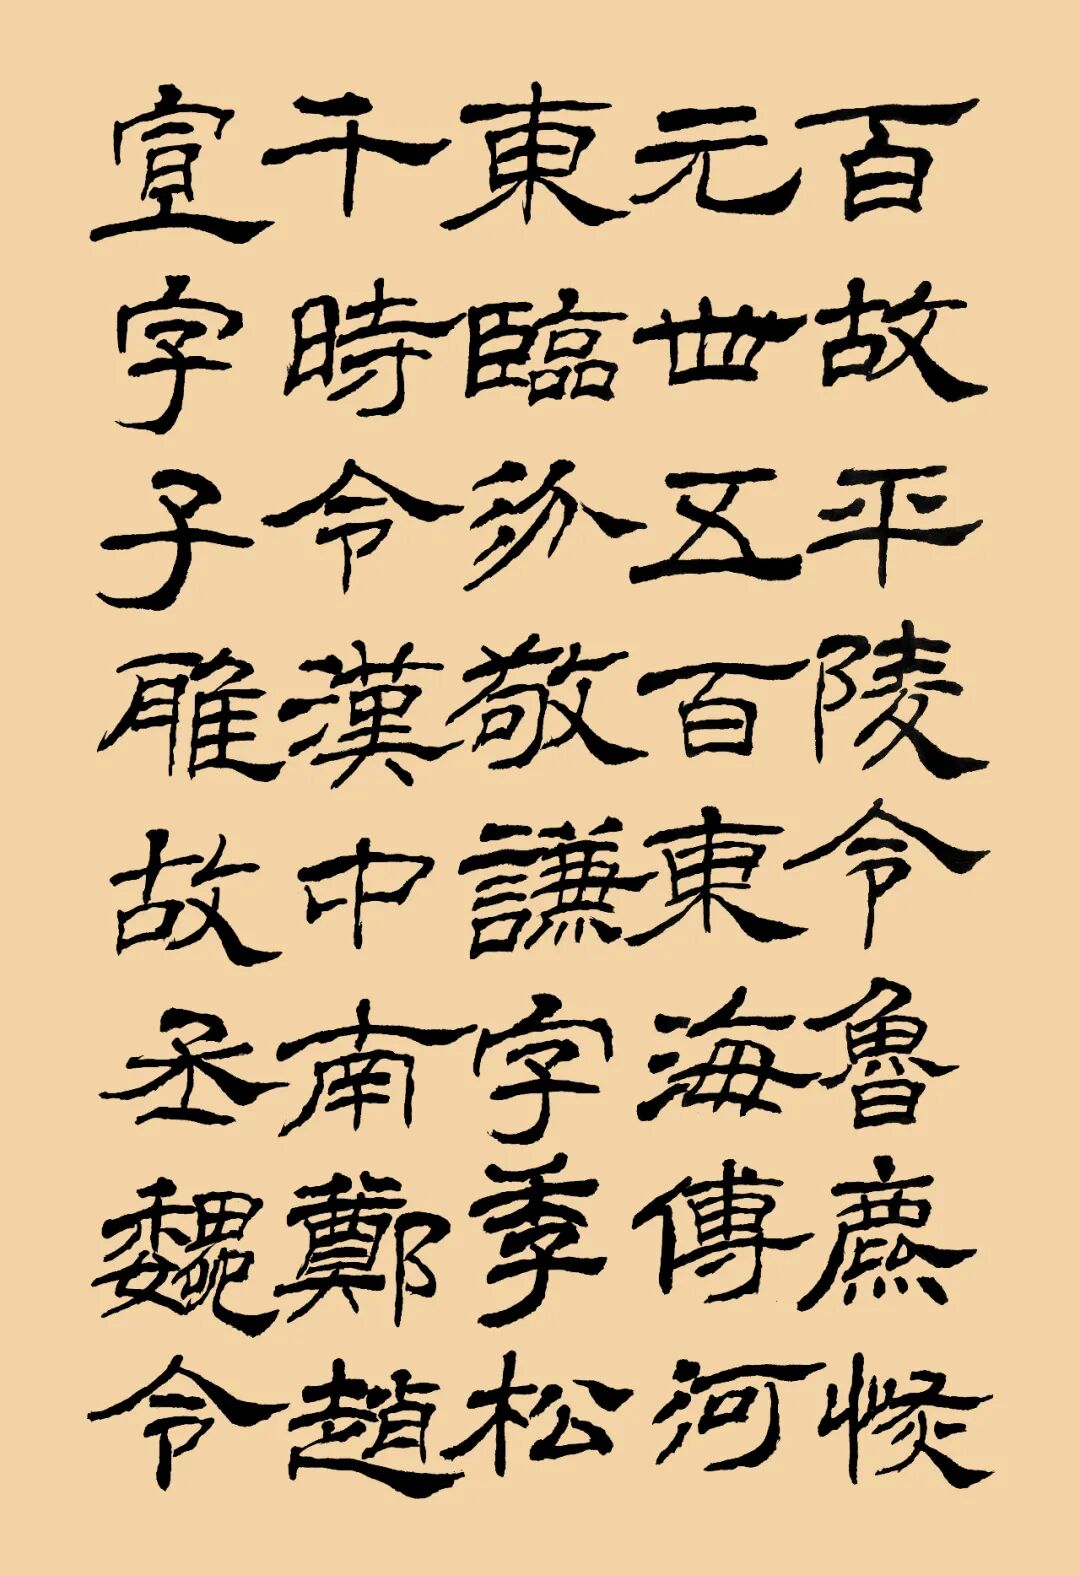 百故平陵令魯麃恢
元世五百東海傅河
東臨汾敬謙字季松
千時令漢中南鄭趙
宣字子雅故丞魏令